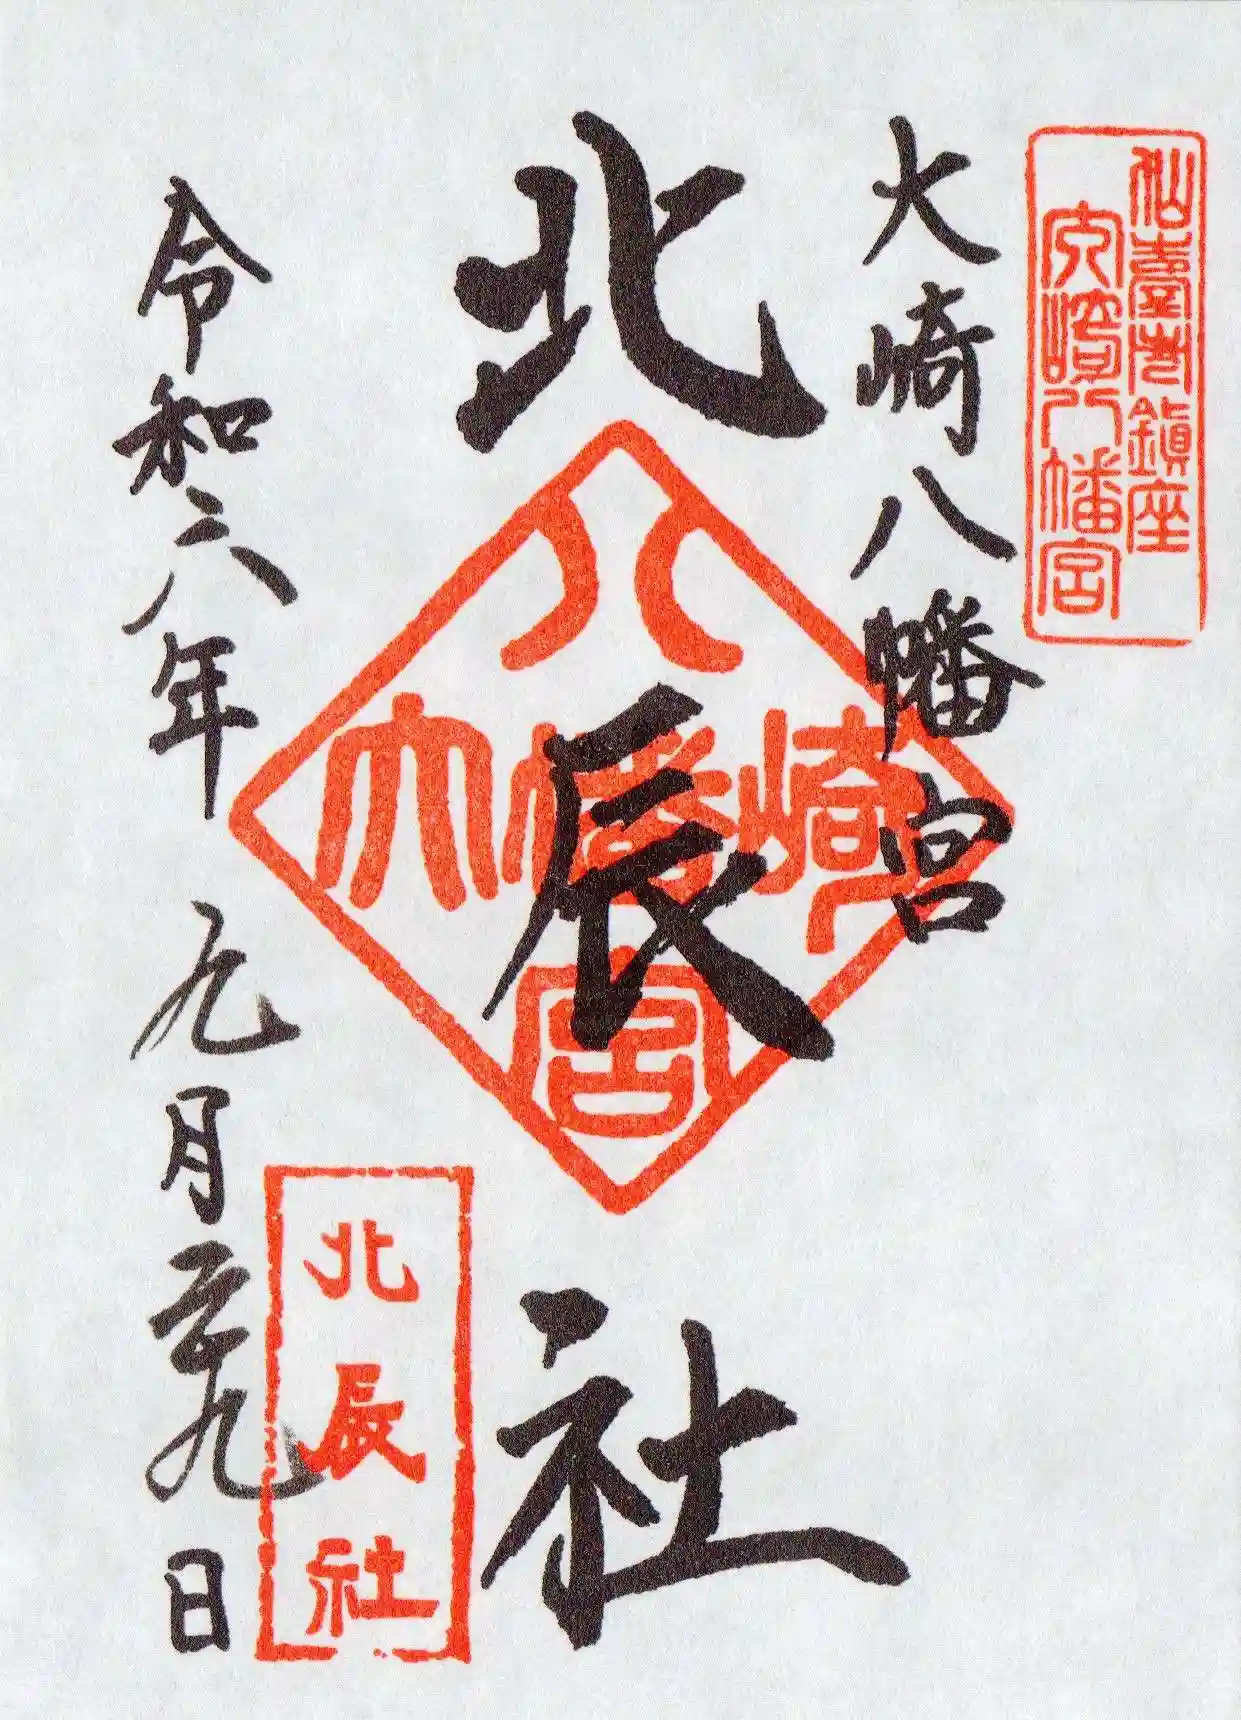 仙臺市鎮座
大崎八幡宮
大崎八幡宮
北辰社
八
大幡崎
宮
北辰社
令和六年九月二十九日